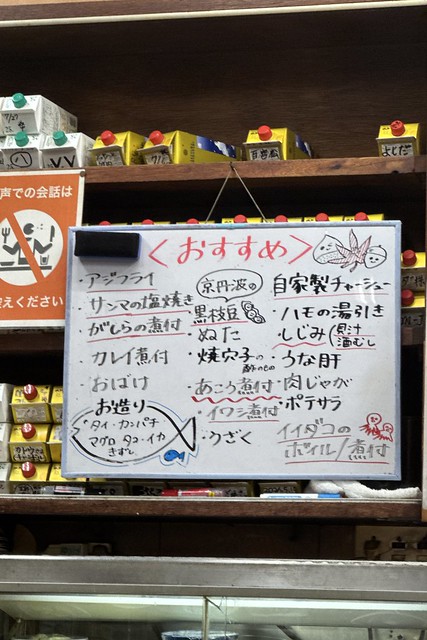 声での会話は
えください
<おすすめ>
・アジフライ
・サンマの塩焼き
・がしらの煮付
・カレイ煮付
・おばけ
お造り
・タイ・カンパチ
マグロ タコ・イカ
きずし
京丹波の
黒枝豆
・ぬた
・焼穴子の
酢のもの
・あこう煮付
・イワシ煮付
・うざく
自家製チャーシュー
・ハモの湯引き
・しじみ(貝汁
酒むし)
・うな肝
・肉じゃが
・ポテサラ
イイダコの
ボイル/煮付